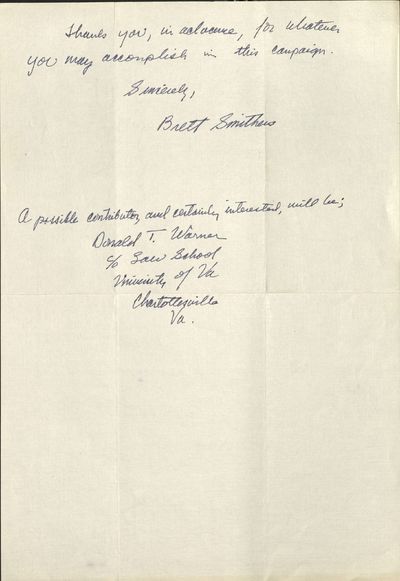 Thank you, in advance, for whatever
you may accomplish in this campaign.
Sincerely,
Brett Smithers
A possible contributor, and certainly interested, will be;
Donald T. Warner
c/o Law School
University of Va
Charlottesville
Va.